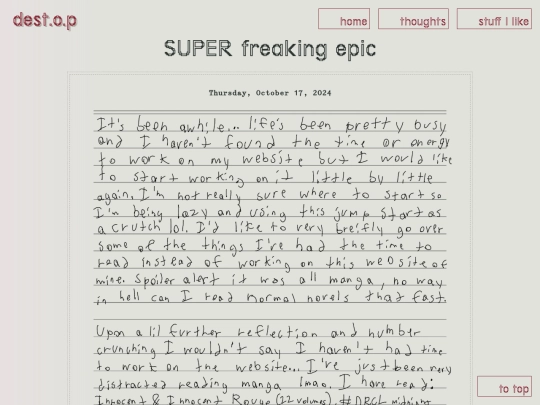 dest.o.p
home
thoughts
stuff I like
SUPER freaking epic
Thursday, October 17, 2024
It's been awhile... life's been pretty busy
and I haven't found the time or energy
to work on my website but I would like
to start working on it little by little
again. I'm not really sure where to start so
I'm being lazy and using this jump start as
a crutch lol. I'd like to very breifly go over
some of the things I've had the time to
read instead of working on this website of
mine. Spoiler alert it was all manga, no way
in hell can I read normal novels that fast.
Upon a lil further reflection and number
crunching I wouldn't say I haven't had time
to work on the website... I've just been very
distracted reading manga lmao. I have read:
Innocent & Innocent Rouge (12 volumes), #DRCL midnight
to top